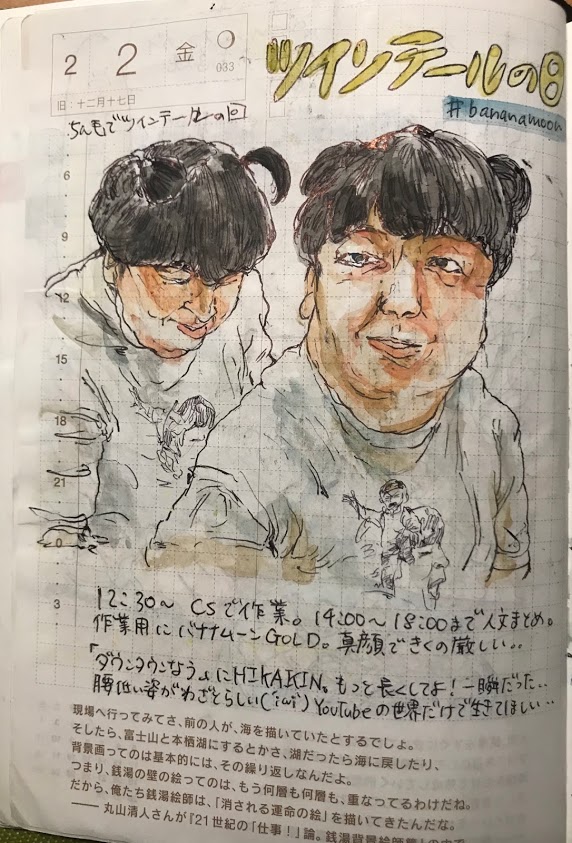 2 2 金
033
旧：十二月十七日
ツインテールの回
#bananamoon
ちん毛でツインテールの回
6
9
12
15
18
21
0
3
12:30〜 CSで作業。14:00〜18:00まで人文まとめ。
作業用にバナナムーンGOLD。真顔できくの厳しい..
「ダウンタウンなう」にHIKAKIN。もっと長くしてよ！一瞬だった..
腰低い姿がわざとらしい(´ω`) YouTubeの世界だけで生きてほしい..
現場へ行ってみてさ、前の人が、海を描いていたとするでしょ。
そしたら、富士山と本栖湖にするとかさ、湖だったら海に戻したり、
背景画ってのは基本的には、その繰り返しなんだよ。
つまり、銭湯の壁の絵ってのは、もう何層も何層も、重なってるわけだね。
だから、俺たち銭湯絵師は、「消される運命の絵」を描いてきたんだな。
―― 丸山清人さんが『21世紀の「仕事！」論。銭湯背景絵師篇』の中で